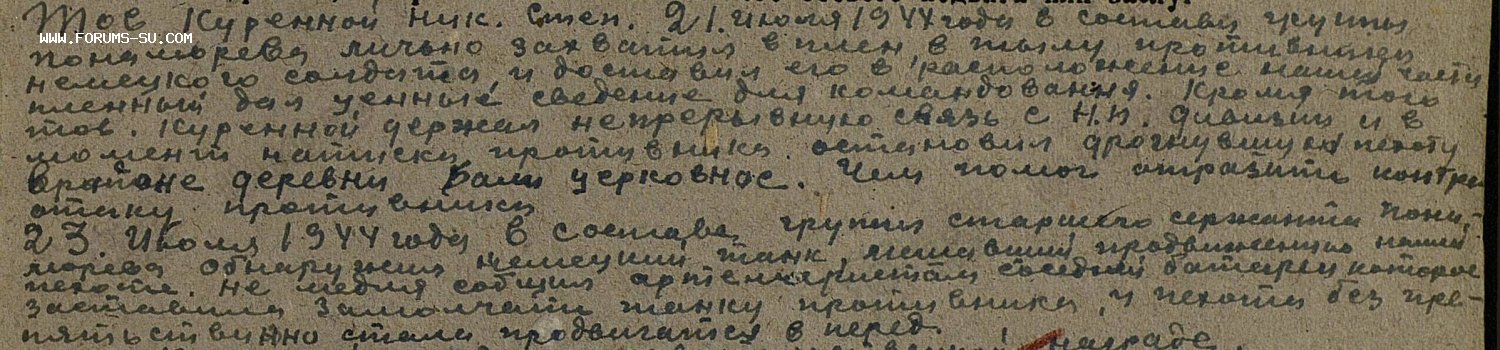 Тов Куренной Ник. Степ. 21. Июля 1944 года в составе группы
WWW.FORUMS-SU.COM
Пономорева лично захватил в плен в тылу противника
немецкого солдата, и доставил его в расположение нашей части
пленный дал ценные сведение для командования. Кромя того
тов. Куренной держал непрерывную связь с Н.П. дивизии и в
момент натиска противника остановил дрогнувшую пехоту
врайоне деревни церковное. Чем помог отразить контр
отаку противника
23. Июля 1944 года в составе группы старшего сержанта Поно-
морева обнаружил немецкий танк, мешавший продвижению нашей
пехоте. Не медля собщил артелеристам соседней батареи которое
заставила замолчать танку противника, и пехота без пре-
пятьственно стала продвигатся в перед.
награде.